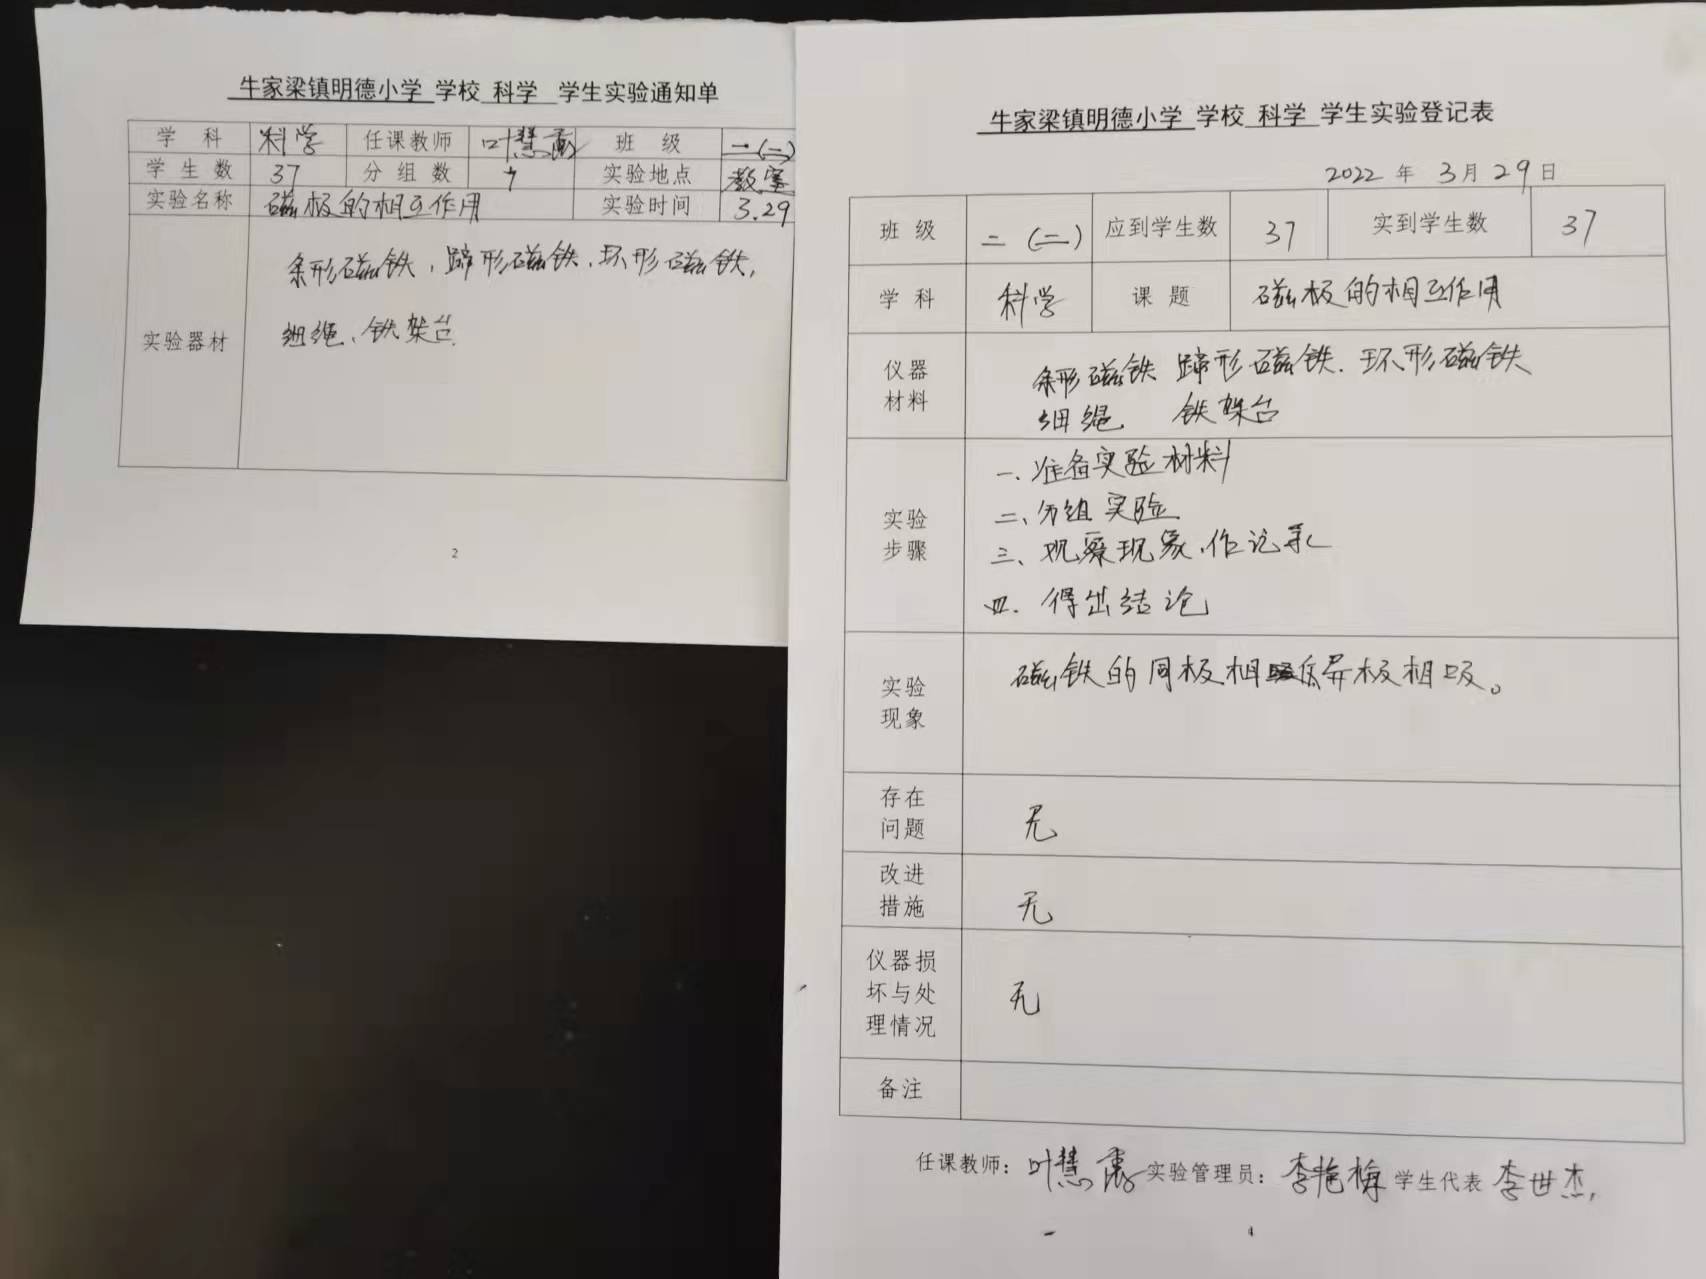 牛家梁镇明德小学 学校 科学 学生实验通知单
学 科 科学 任课教师 叶慧 班 级 二(二)
学 生 数 37 分 组 数 实验地点 教室
实验名称 磁极的相互作用 实验时间 3.29
实验器材
条形磁铁，蹄形磁铁、环形磁铁，
细绳、铁架台
2
牛家梁镇明德小学 学校 科学 学生实验登记表
2022 年 3月 29日
班 级 二(二) 应到学生数 37 实到学生数 37
学 科 科学 课 题 磁极的相互作用
仪器
材料
条形磁铁 蹄形磁铁、环形磁铁
细绳 铁架台
实验
步骤
一、准备实验材料
二、分组实验
三、观察现象、作记录
四、得出结论
实验
现象
磁铁的同极相 异极相吸。
存在
问题
无
改进
措施
无
仪器损
坏与处
理情况
无
备注
任课教师：叶慧 实验管理员：李艳梅 学生代表 李世杰
4